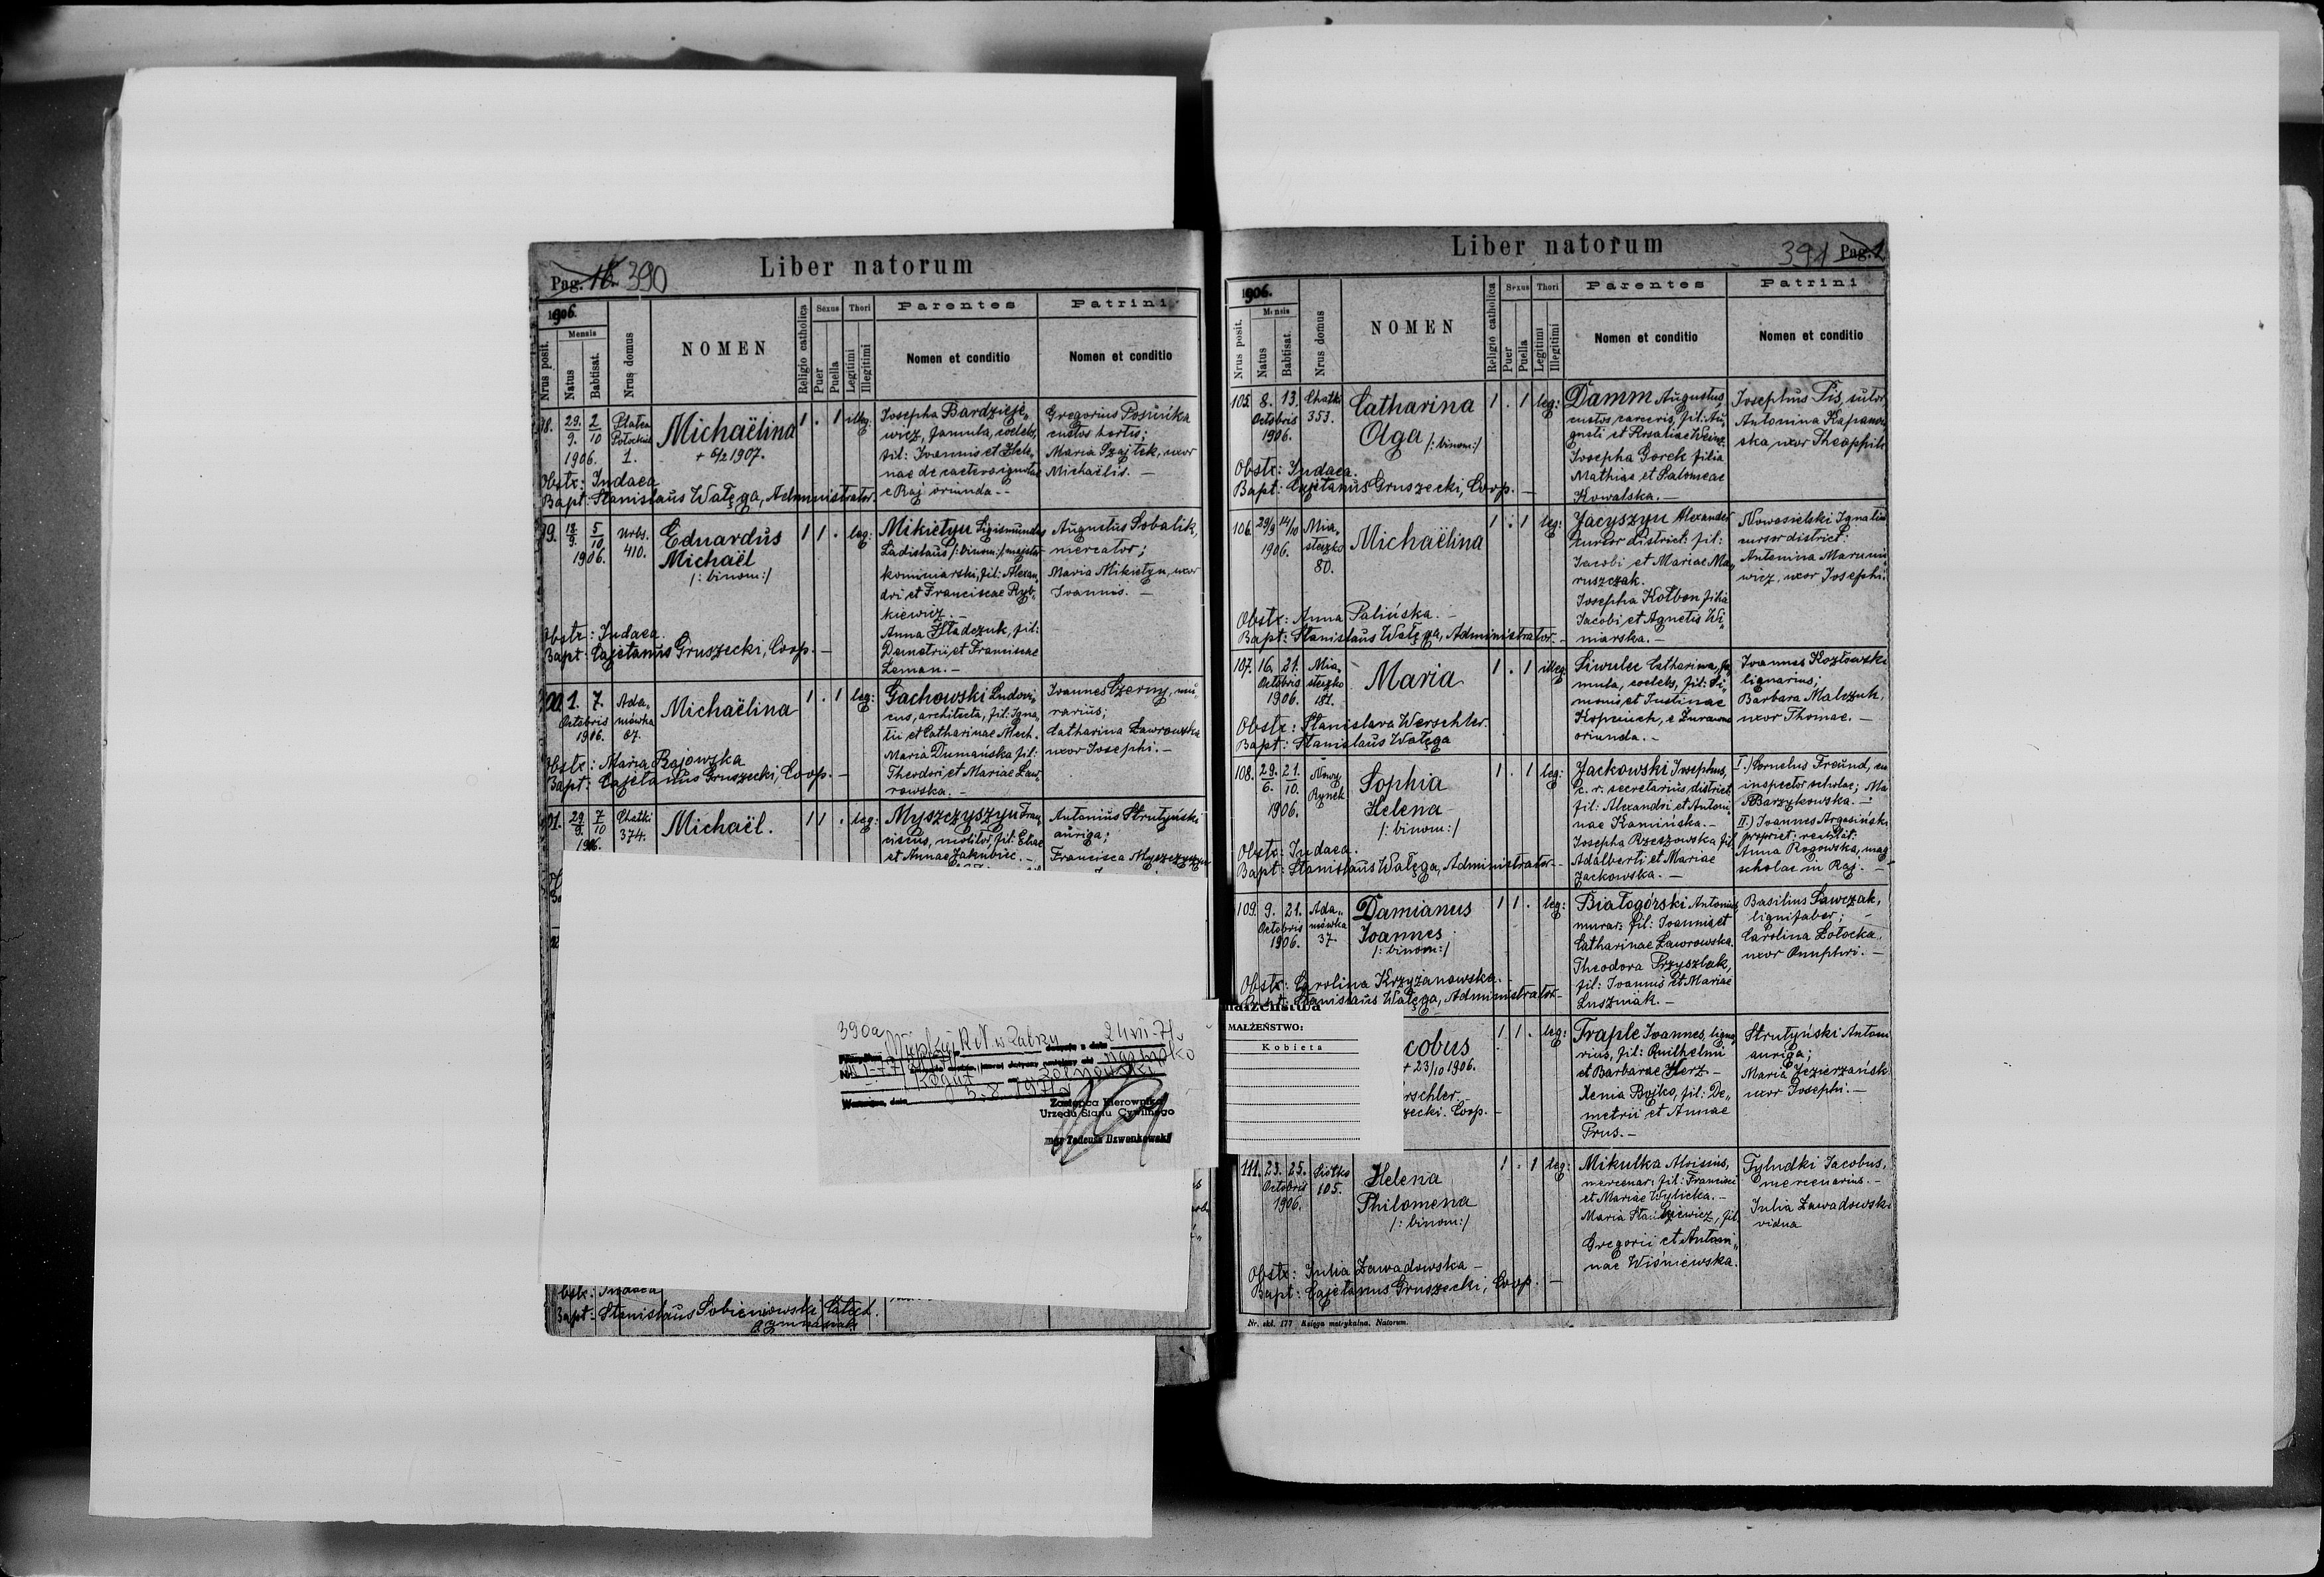 Liber natorum
Pag. 16. 390
1906.
Mensis
Nrus posit.
Natus
Babtisat.
Nrus domus
NOMEN
Religio catholica
Sexus
Puer
Puella
Thori
Legitimi
Illegitimi
Parentes
Nomen et conditio
Patrini
Nomen et conditio
98. 29/9. 2/10 1906.
Platea
Potockich
1.
Michaëlina
1 . 1 illeg:
Josepha Bardzieje„
wicz, famula, coelebs,
fil: Joannis et Hele„
nae de caetero ignotae
e Raj oriunda. -
Gregorius Posunka
custos hortis;
Maria Szajtek, uxor
Michaëlis. -
Obstr: Judaea
Bapt: Stanislaus Wałęga, Administrator.
99. 18/9. 5/10 1906.
Urbs.
410.
Eduardus
Michaël
/: binom:/
1 1 . leg:
Mikietyn Sigismundus
Ladislaus /: binom:/ magister
kominiarski, fil: Alexan„
dri et Franciscae Ryb„
kiewicz. -
Anna Hładczuk, fil:
Demetrii et Franciscae
Leman. -
Augustus Sobalik,
mercator;
Maria Mikietyn, uxor
Joannis. -
Obstr: Judaea.
Bapt: Cajetanus Gruszecki, Coop. -
100. 1. 7.
Octobris
1906.
Ada„
mówka
Michaëlina
1 . 1 leg:
Gachowski Ludovi„
cus, architecta, fil: Igna„
tii et Catharinae Mech.
Maria Dumańska fil:
Theodori et Mariae Law„
rowska. -
Joannes Czerny, mu„
rarius;
Catharina Lawrowska
uxor Josephi. -
Obstr: Maria Rajowska
Bapt: Cajetanus Gruszecki, Coop. -
101. 29/9. 7/10 1906.
Chatki
374.
Michaël.
1 1 . leg:
Myszczyszyn Fran„
ciscus, molitor, fil: Eliae
et Annae Jakubiec. -
Antonius Strutyński
auriga;
Francisca Myszczyszyn
390a
24 VII-71
Zastępca Kierownika
Urzędu Stanu Cywilnego
mgr Tadeusz Dzwonkowski
Obstr: Judaea
Bapt: Stanislaus Sobieniowski, Catech.
Gymnasial.
Liber natorum
391 Pag.
1906.
Mensis
Nrus posit.
Natus
Babtisat.
Nrus domus
NOMEN
Religio catholica
Sexus
Puer
Puella
Thori
Legitimi
Illegitimi
Parentes
Nomen et conditio
Patrini
Nomen et conditio
105. 8. 13.
Octobris
1906.
Chatki
353.
Catharina
Olga /: binom:/
1 . 1 leg:
Damm Augustus,
custos carceris, fil: Au„
gusti et Rosaliae
Josepha Gorek filia
Mathiae et Salomeae
Kowalska. -
Josephus Pis, sutor
Antonina
uxor Theophili
Obstr: Judaea.
Bapt: Cajetanus Gruszecki, Coop. -
106. 29/9 14/10
1906.
Mia„
steczko
80.
Michaëlina
1 . 1 leg:
Jacyszyn Alexander
cursor district: fil:
Jacobi et Mariae Ma„
ruszczak.
Josepha Kolbon filia
Jacobi et Agnetis Wi„
niarska. -
Nowosielski Ignatius
cursor district:
Antonina
uxor Josephi.
Obstr: Anna Salińska. -
Bapt: Stanislaus Wałęga, Administrator. -
107. 16. 21.
Octobris
1906.
Mia„
steczko
Maria
1 . 1 illeg:
Siwulec Catharina, fa„
mula, coelebs, fil: Si„
monis et Justinae
oriunda. -
Joannes Kozłowski
lignarius;
Barbara Malczuk,
uxor Thomae. -
Obstr: Stanislava Werschler.
Bapt: Stanislaus Wałęga
108. 29/6. 21/10.
1906.
Nowy
Rynek
Sophia
Helena
/: binom:/
1 . 1 leg:
Jackowski Josephus,
c. r. secretarius district.
fil: Alexandri et Antoni„
nae Kamińska. -
Josepha Rzeszowska fil.
Adalberti et Mariae
Jackowska. -
I.) Cornelius Freund,
inspector scholae; Ma
Barzykowska. -
II.) Joannes Argasiński
propriet. realität.
Anna Rogowska, mag
scholae in Raj. -
Obstr: Judaea.
Bapt: Stanislaus Wałęga, Administrator -
109. 9. 21.
Octobris
1906.
Ada„
mówka
37.
Damianus
Joannes
/: binom:/
1 1 . leg:
Białogórski Antonius
murar: fil: Joannis et
Catharinae Lawrowska.
Theodora Przyszlak,
fil: Joannis et Mariae
Luszniak. -
Basilius Sawczak,
lignifaber; -
Carolina Łotocka,
uxor Onuphri. -
Obstr: Carolina Krzyżanowska. -
Bapt: Stanislaus Wałęga, Administrator -
małżeństwa
MAŁŻEŃSTWO:
Kobieta
cobus
+ 23/10 1906.
rschler.
zecki. Coop. -
1 1 . leg:
Traple Joannes, ligna„
rius, fil: Quilhelmi
et Barbarae Herz. -
Xenia Bojko, fil: De„
metrii et Annae
Prus. -
Strutyński Antoni
auriga;
Maria Jezierzańsk
uxor Josephi. -
111. 23. 25.
Octobris
1906.
Siółko
105.
Helena
Philomena
/: binom:/
1 . 1 leg:
Mikulka Aloisius,
mercenar: fil: Francisci
et Mariae Wylicka. -
Maria Stankiewicz, fil.
Gregorii et Antoni„
nae Wiśniewska.
Tyludki Jacobus,
mercenarius. -
Julia Zawadowska
vidua
Obstr: Julia Zawadowska -
Bapt: Cajetanus Gruszecki, Coop. -
Nr. skł. 177 Księga metrykalna. Natorum.